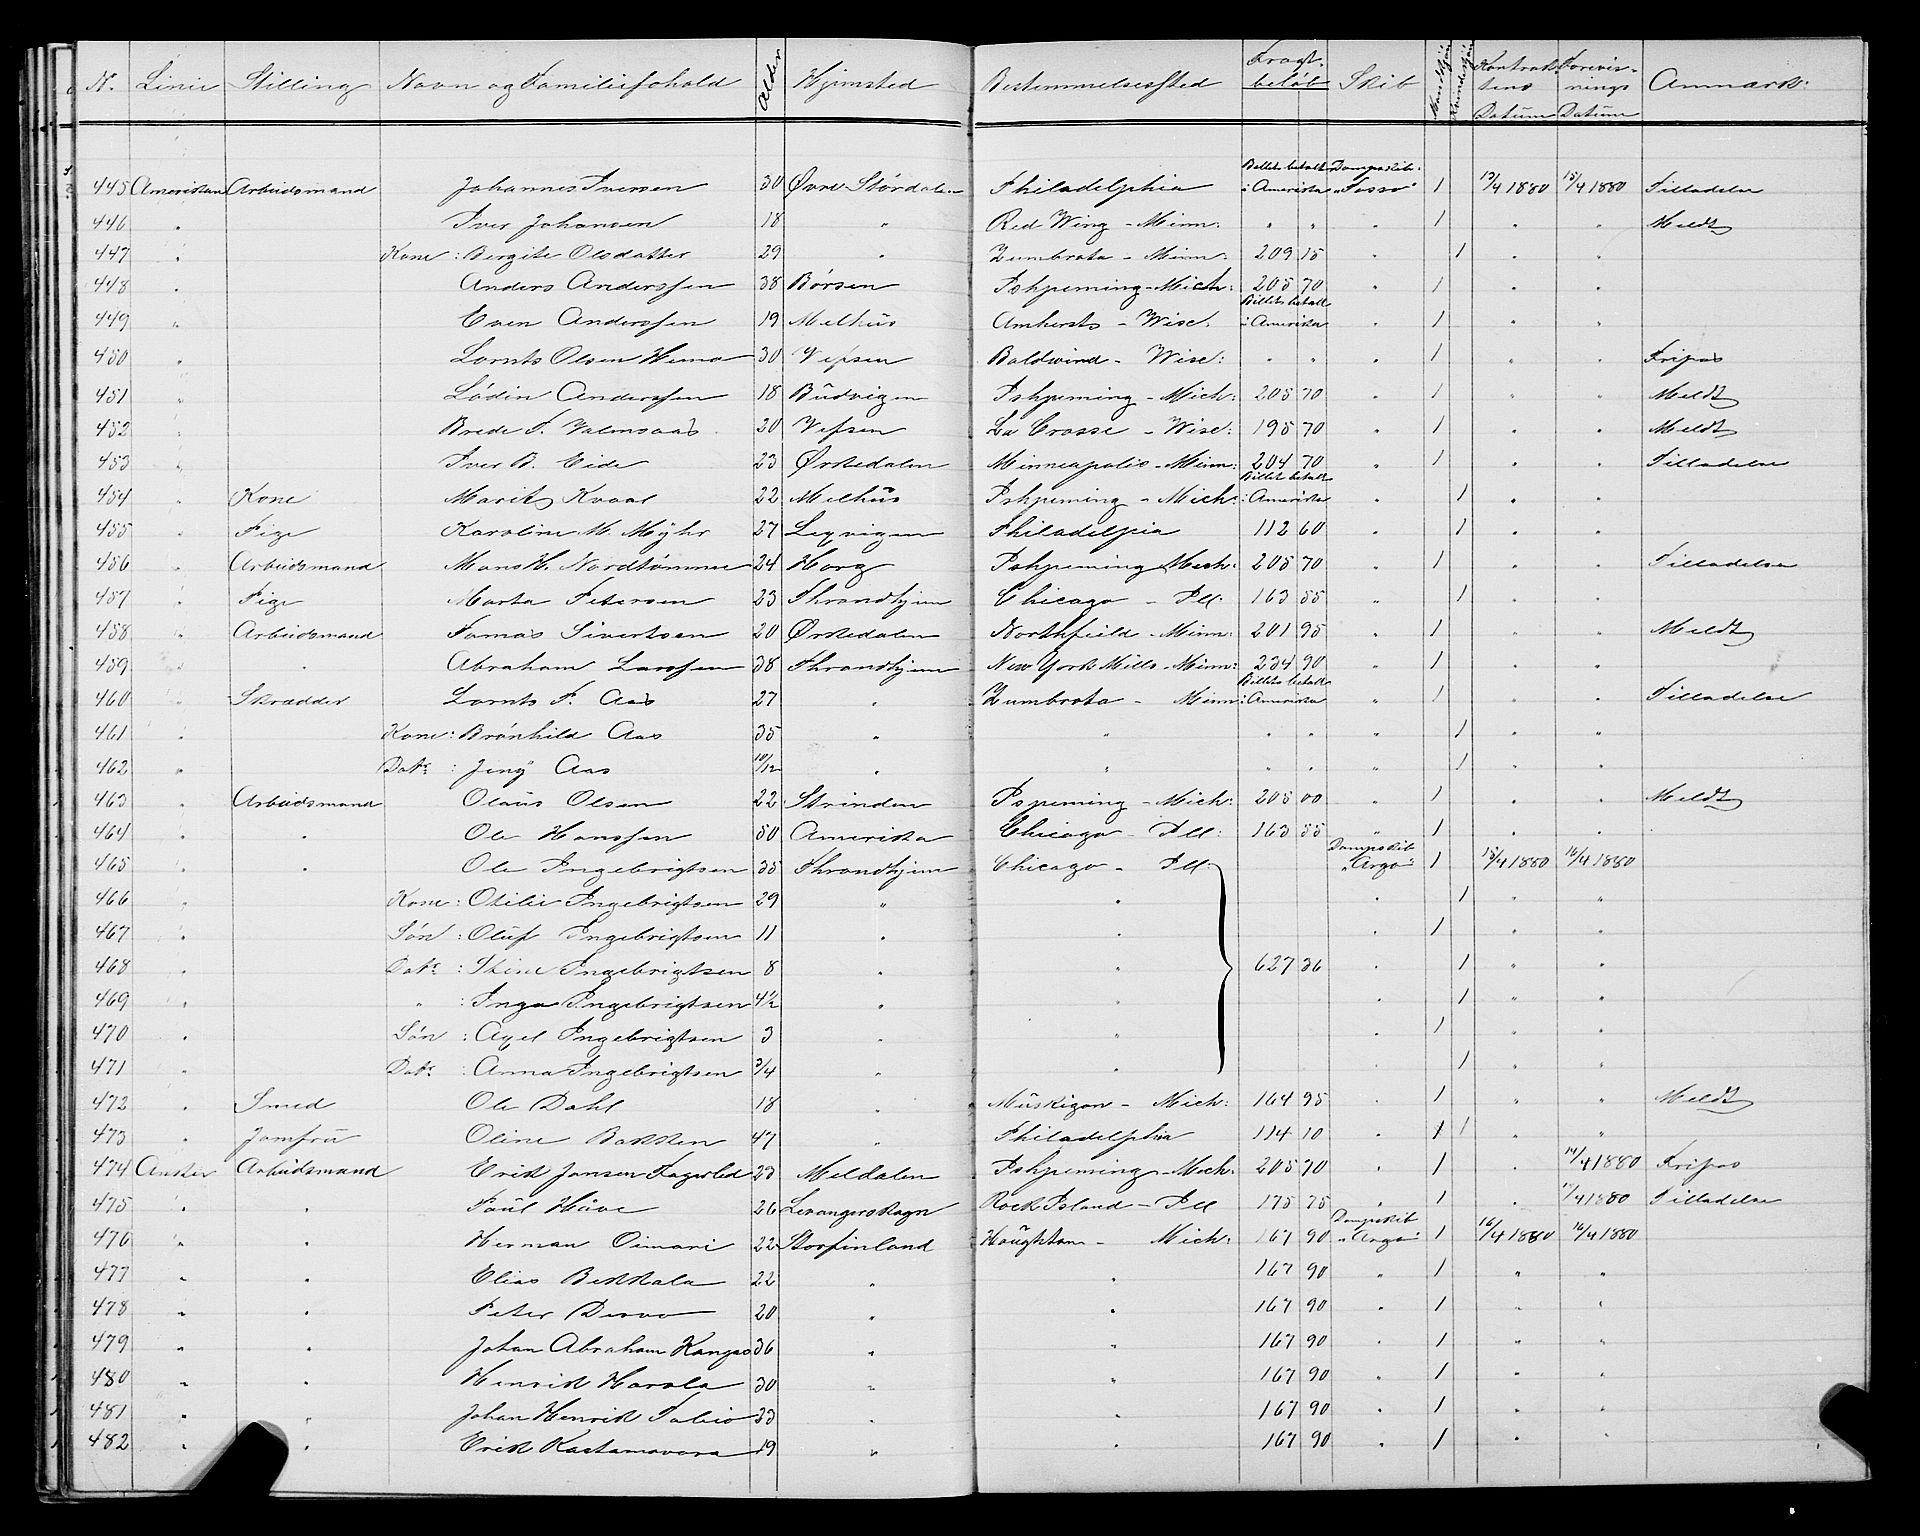 N. Linie Stilling Navn og Familieforhold Alder Hjemsted Bestemmelsessted Fragt-beløb Skib Mandkjøn Kvindekjøn Kontraktens Datum Forevisnings Datum Anmærk:
445 Amerikan Arbeidsmand Johannes Iversen 30 Øvre Størdalen Philadelphia Billet betalt i Amerika Dampskib: "Tasso" 1 13/4 1880 15/4 1880 Tilladelse
446 " Iver Johansen 18 " Red Wing - Minn: " " " 1 " " Meldt
447 " Kone: Bergite Olsdatter 29 " Zumbrota - Minn: 209 15 " 1 " "
448 " Anders Anderssen 38 Børsen Ishpeming - Mich: 205 70 " 1 " "
449 " Even Anderssen 19 Melhüs Amhersts - Wisc: Billet betalt i Amerika " 1 " "
450 " Lornts Olsen Hemo 30 Vefsen Baldwind - Wisc: " " " 1 " " Fripas
451 " Lødin Anderssen 18 Büdvigen Ishpeming - Mich: 205 70 " 1 " " Meldt
452 " Brede F. Valmsaas 20 Vefsen La Crosse - Wisc: 195 70 " 1 " " Meldt
453 " Iver B. Eide 23 Ørkedalen Minneapolis - Minn: 204 70 " 1 " " Tilladelse
454 " Kone Marit Kvaal 22 Melhüs Ishpeming - Mich: Billet betalt i Amerika " 1 " "
455 " Pige Karoline M. Mÿhr 27 Leqvigen Philadelpia 112 60 " 1 " "
456 " Arbeidsmand Mons H. Nordtømme 24 Horg Ishpeming Mich: 205 70 " 1 " " Tilladelse
457 " Pige Marta Petersen 23 Throndhjem Chicago - Ill: 163 55 " 1 " "
458 " Arbeidsmand Tomas Sivertsen 20 Ørkedalen Northfield - Minn: 201 95 " 1 " " Meldt
459 " " Abraham Larssen 38 Throndhjem New York Mills - Minn: 234 90 " 1 " "
460 " Skrædder Lornts P. Aas 27 " Zumbrota - Minn: Billet betalt i Amerika " 1 " " Tilladelse
461 " Kone: Brønhild Aas 35 " " " " " 1 " "
462 " Datr: Jenÿ Aas 10/12 " " " " " 1 " "
463 " Arbeidsmand Olaüs Olsen 22 Strinden Ispeming - Mich: 205 00 " 1 " " Meldt
464 " " Ole Hanssen 50 Amerika Chicago - Ill: 163 55 " 1 " "
465 " " Ole Ingebrigtsen 35 Throndhjem Chicago - Ill: Dampskib "Argo" 1 15/4 1880 16/4 1880
466 " Kone: Otilie Ingebrigtsen 29 " " " 1 " "
467 " Søn: Olüf Ingebrigtsen 11 " " " 1 " "
468 " Datr: Stine Ingebrigtsen 8 " " 627 36 " 1 " "
469 " " : Inga Ingebrigtsen 4 1/2 " " " 1 " "
470 " Søn: Axel Ingebrigtsen 3 " " " 1 " "
471 " Datr: Anna Ingebrigtsen 3/4 " " " 1 " "
472 " Smed Ole Dahl 18 " Müskigon - Mich: 164 95 " 1 " " Meldt
473 " Jomfrü Oline Bakken 47 " Philadelphia 114 10 " 1 1 " "
474 Anker Arbeidsmand Erik Jansen Fagerled 23 Meldalen Ishpeming - Mich: 205 70 " 1 " 14/4 1880 Fripas
475 " " Paül Häve 26 Levangerskogn Rock Island - Ill 175 75 " 1 " 17/4 1880 Tilladelse
476 " " Herman Oimari 22 Storfinland Hoüghton - Mich: 167 90 Dampskib "Argo" 1 16/4 1880 16/4 1880
477 " " Elias Bekkala 22 " " 167 90 " 1 " "
478 " " Peter Dervo 20 " " 167 90 " 1 " "
479 " " Johan Abraham Kangas 36 " " 167 90 " 1 " "
480 " " Henrik Harala 30 " " 167 90 " 1 " "
481 " " Johan Henrik 33 " " 167 90 " 1 " "
482 " " Erik Kastamovora 19 " " 167 90 " 1 " "